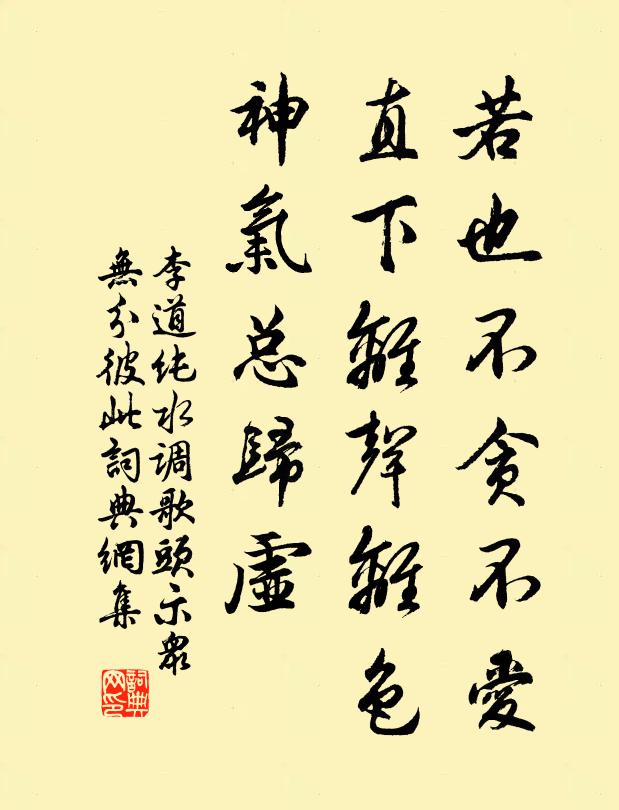 若也不贪不愛
直下離聲離色
神氣总歸虛
李道纯水调歌頭示眾
無分彼此詞典網集
詞典网印